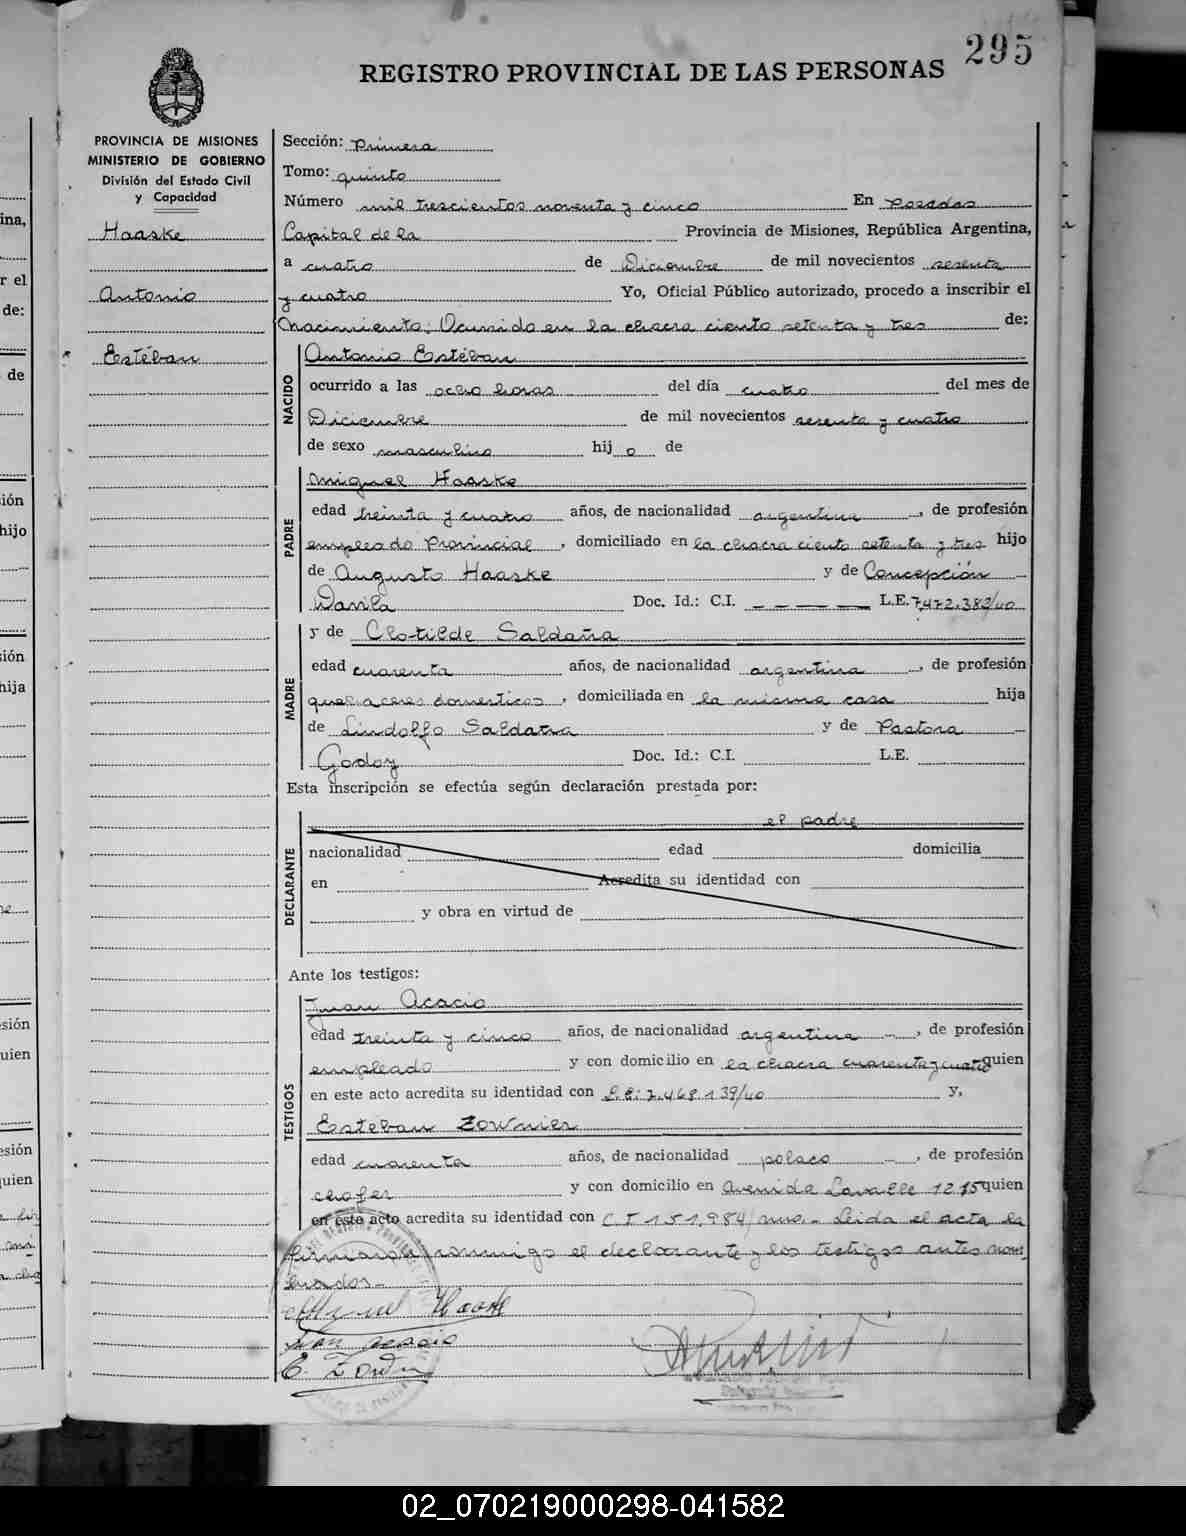 295
REGISTRO PROVINCIAL DE LAS PERSONAS
PROVINCIA DE MISIONES
MINISTERIO DE GOBIERNO
División del Estado Civil
y Capacidad
Haaske
Antonio
Estéban
Sección: Primera
Tomo: quinto
Número mil trescientos noventa y cinco En Posadas
Capital de la Provincia de Misiones, República Argentina,
a cuatro de Diciembre de mil novecientos sesenta
y cuatro Yo, Oficial Público autorizado, procedo a inscribir el
Nacimiento: Ocurrido en la chacra ciento setenta y tres de:
NACIDO
Antonio Estéban
ocurrido a las ocho horas del día cuatro del mes de
Diciembre de mil novecientos sesenta y cuatro
de sexo masculino hijo de
PADRE
Miguel Haaske
edad treinta y cuatro años, de nacionalidad argentina, de profesión
empleado Provincial, domiciliado en la chacra ciento setenta y tres hijo
de Augusto Haaske y de Concepción
Davila Doc. Id.: C.I. — — — — L.E. 7.472.382/40
MADRE
y de Clotilde Saldaña
edad cuarenta años, de nacionalidad argentina, de profesión
quehaceres domesticos, domiciliada en la misma casa hija
de Lindolfo Saldaña y de Pastora
Godoy Doc. Id.: C.I. L.E.
Esta inscripción se efectúa según declaración prestada por:
DECLARANTE
el padre
nacionalidad edad domicilia
en Acredita su identidad con
y obra en virtud de
Ante los testigos:
TESTIGOS
Juan Acacio
edad treinta y cinco años, de nacionalidad argentina, de profesión
empleado y con domicilio en la chacra cuarenta y cuatro quien
en este acto acredita su identidad con L.E: 7.468.139/40 y,
Esteban Zownier
edad cuarenta años, de nacionalidad polaco, de profesión
chofer y con domicilio en Avenida Lavalle 1215 quien
en este acto acredita su identidad con C I 151.984/mns.- Leida el acta la
firmaron conmigo el declarante y los testigos antes nom-
brados-
Miguel Haaske
Juan Acacio
02_070219000298-041582